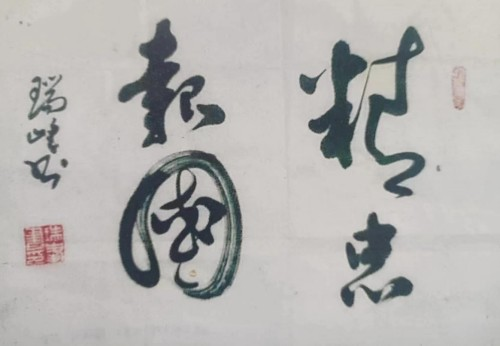 精忠
報國
瑞峰书